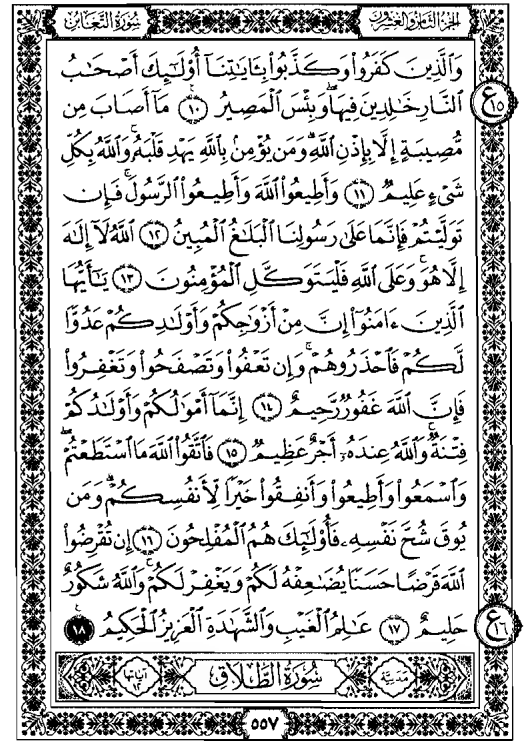 سُورَةُ التَّغَابُنِ
الجزء الثامن والعشرون
وَٱلَّذِينَ كَفَرُوا۟ وَكَذَّبُوا۟ بِـَٔايَـٰتِنَآ أُو۟لَـٰٓئِكَ أَصْحَـٰبُ
ٱلنَّارِ خَـٰلِدِينَ فِيهَا ۖ وَبِئْسَ ٱلْمَصِيرُ ١٠ مَآ أَصَابَ مِن
ع ١٥
مُّصِيبَةٍ إِلَّا بِإِذْنِ ٱللَّهِ ۗ وَمَن يُؤْمِنۢ بِٱللَّهِ يَهْدِ قَلْبَهُۥ ۚ وَٱللَّهُ بِكُلِّ
شَىْءٍ عَلِيمٌ ١١ وَأَطِيعُوا۟ ٱللَّهَ وَأَطِيعُوا۟ ٱلرَّسُولَ ۚ فَإِن
تَوَلَّيْتُمْ فَإِنَّمَا عَلَىٰ رَسُولِنَا ٱلْبَلَـٰغُ ٱلْمُبِينُ ١٢ ٱللَّهُ لَآ إِلَـٰهَ
إِلَّا هُوَ ۚ وَعَلَى ٱللَّهِ فَلْيَتَوَكَّلِ ٱلْمُؤْمِنُونَ ١٣ يَـٰٓأَيُّهَا
ٱلَّذِينَ ءَامَنُوٓا۟ إِنَّ مِنْ أَزْوَٰجِكُمْ وَأَوْلَـٰدِكُمْ عَدُوًّا
لَّكُمْ فَٱحْذَرُوهُمْ ۚ وَإِن تَعْفُوا۟ وَتَصْفَحُوا۟ وَتَغْفِرُوا۟
فَإِنَّ ٱللَّهَ غَفُورٌ رَّحِيمٌ ١٤ إِنَّمَآ أَمْوَٰلُكُمْ وَأَوْلَـٰدُكُمْ
فِتْنَةٌ ۚ وَٱللَّهُ عِندَهُۥٓ أَجْرٌ عَظِيمٌ ١٥ فَٱتَّقُوا۟ ٱللَّهَ مَا ٱسْتَطَعْتُمْ
وَٱسْمَعُوا۟ وَأَطِيعُوا۟ وَأَنفِقُوا۟ خَيْرًا لِّأَنفُسِكُمْ ۗ وَمَن
يُوقَ شُحَّ نَفْسِهِۦ فَأُو۟لَـٰٓئِكَ هُمُ ٱلْمُفْلِحُونَ ١٦ إِن تُقْرِضُوا۟
ٱللَّهَ قَرْضًا حَسَنًا يُضَـٰعِفْهُ لَكُمْ وَيَغْفِرْ لَكُمْ ۚ وَٱللَّهُ شَكُورٌ
حَلِيمٌ ١٧ عَـٰلِمُ ٱلْغَيْبِ وَٱلشَّهَـٰدَةِ ٱلْعَزِيزُ ٱلْحَكِيمُ ١٨
ع ١٦
مَدَنِيَّة سُورَةُ الطَّلَاقِ آياتها ١٢
٥٥٧